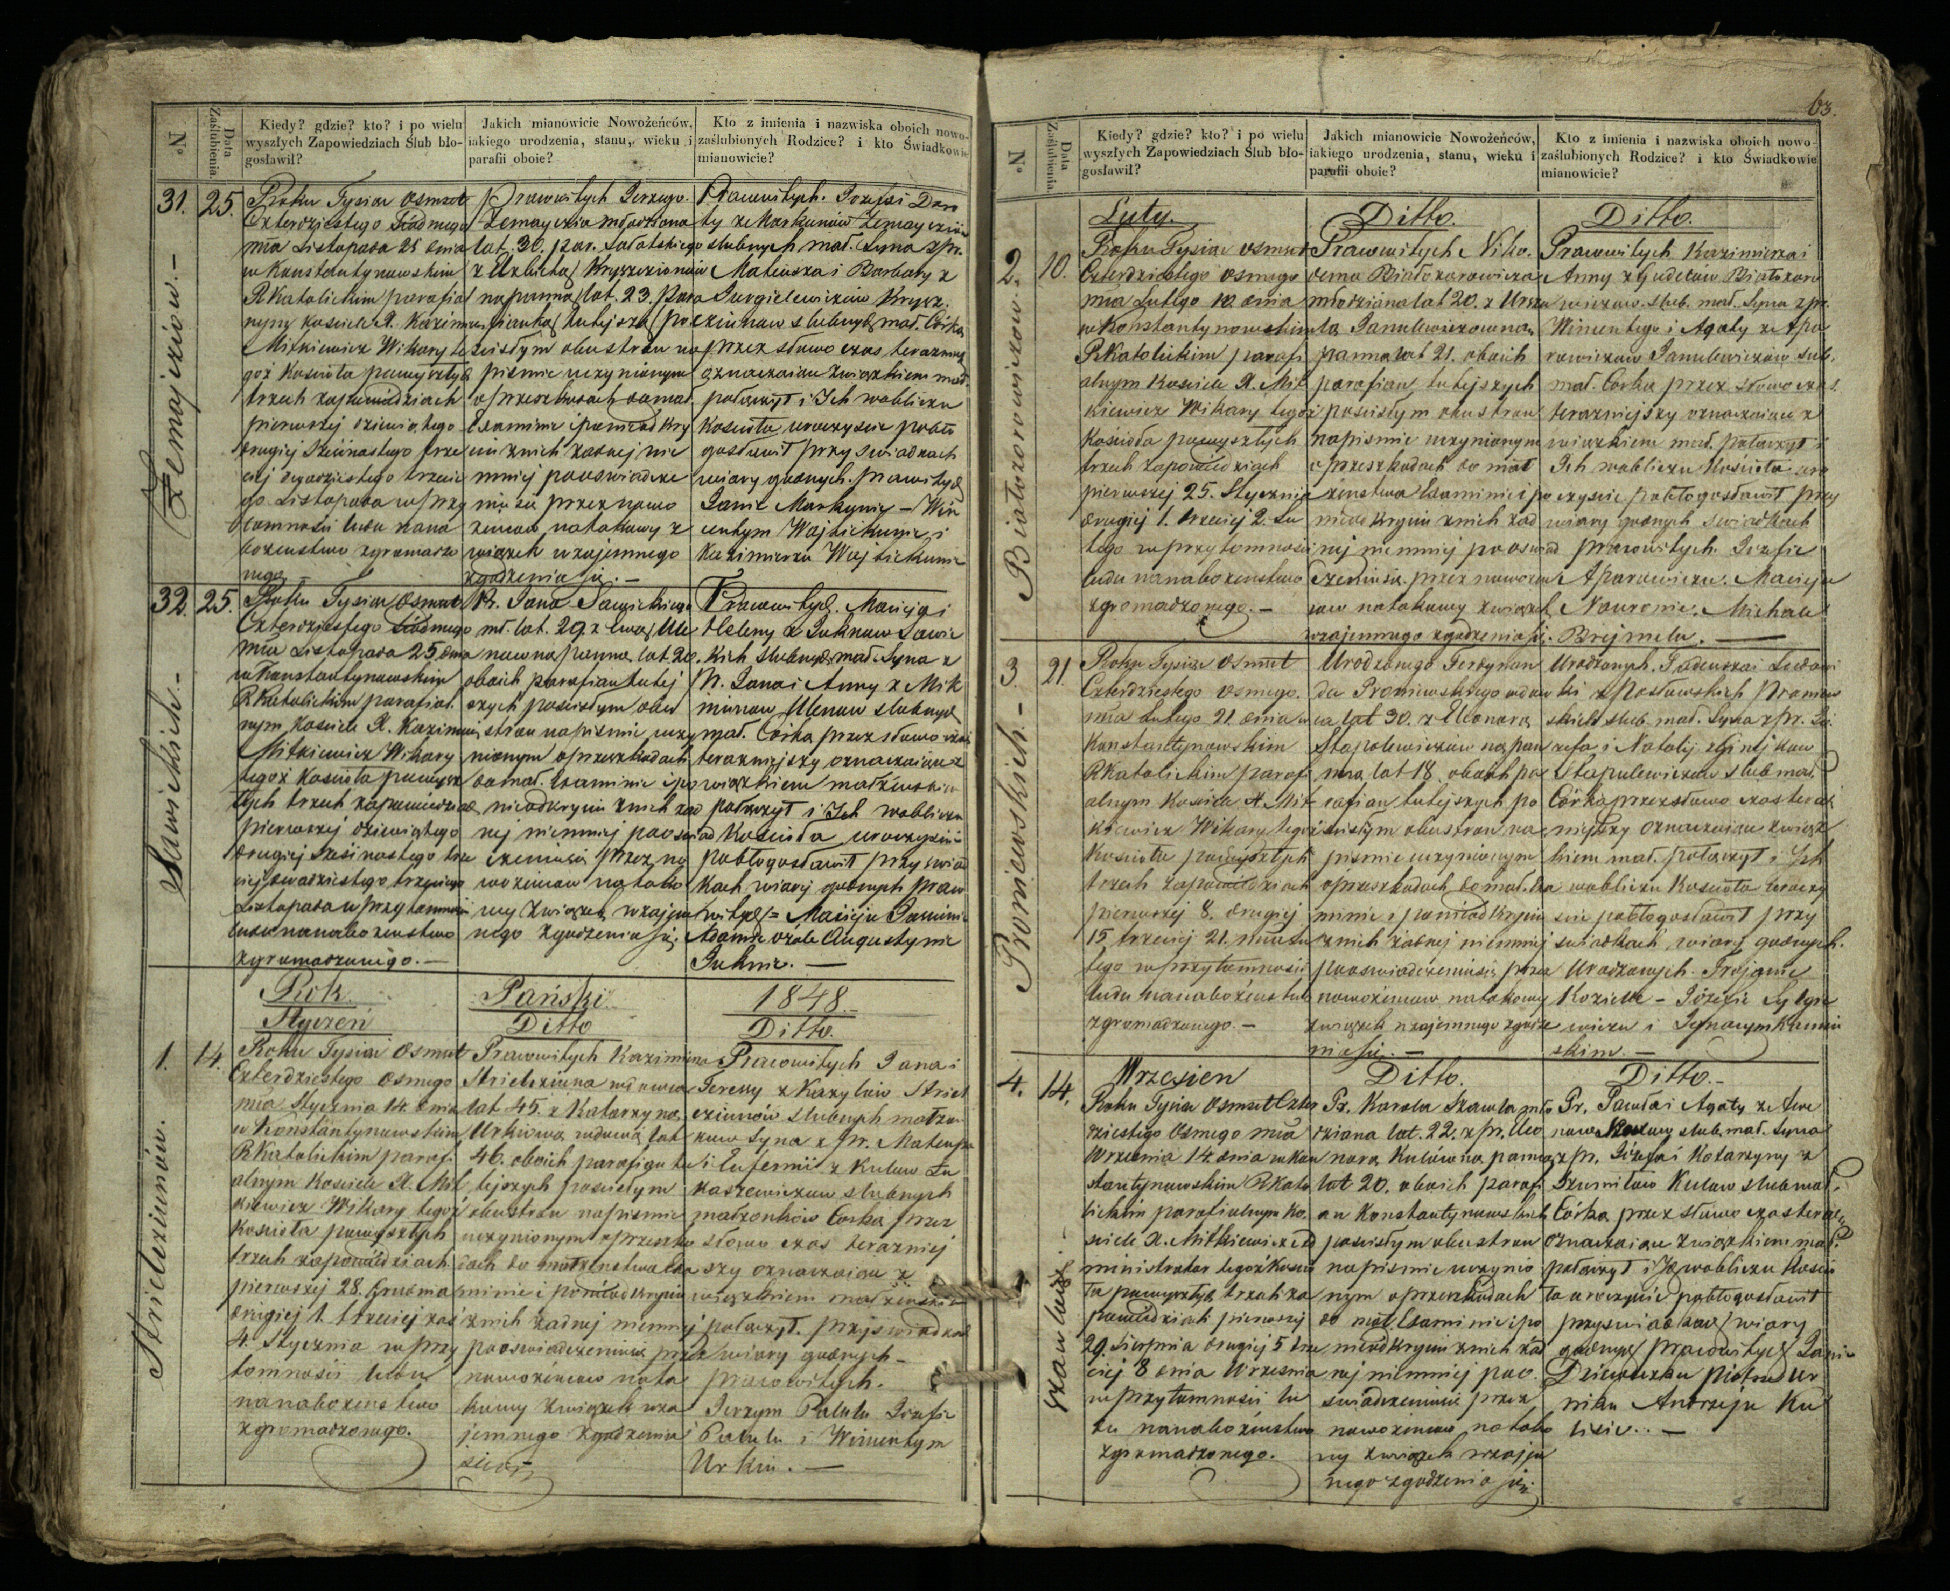 63.
N°
Data Zaślubienia.
Kiedy? gdzie? kto? i po wielu
wyszłych Zapowiedziach Ślub bło-
gosławił?
Jakich mianowicie Nowożeńców,
iakiego urodzenia, stanu, wieku i
parafii oboie?
Kto z imienia i nazwiska oboich nowo-
zaślubionych Rodzice? i kto Świadkowie
mianowicie?
Żemajciów. –
31.
25.
Roku Tysiac osmset
Czterdziestego Siódmego
mca Listopada 25 dnia
w Konstantynowskim
RKatolickim parafial
nym kościele X. Kazimierz
Mitkiewicz Wikary te
goż Kościoła po wyszłych
trzech zapowiedziach
pierwszej dziewiątego
drugiej Szesnastego trze
ciej dwudziestego trzecie
go Listopada w przy
tomności ludu na na
bożeństwo zgromadzo
nego
Prawowitych Jerzego
Żemaycia młodziana
lat. 30. par. Sałatskiego
z Elżbietą Kryszczionów
na panną lat. 23. Para
fianką tutejszą po
ścisłym obustron na
piśmie uczynionym
o przeszkodach do mał.
Examinie i po nieodkry
ciu z nich żadnej nie
mniej po oświadcze
niu się przez nowo
żeńców na takowy z
wiązek wzajemnego
zgodzenia się. –
Prawowitych. Jozefa i Doro
ty z Markunów Żemayciów
ślubnych mał. Syna z pr.
Mateusza i Barbary z
Jurgielewiczów Krysz.
cziunow slubnych mał. Córkę
przez słowo czas teraznieyszy
oznaczaiące związkiem mał.
połączył i Ich w obliczu
Kościoła uroczyscie pobło
gosławił przy swiadkach
wiary godnych. prawowitych
Janie Markunie – Win
centym Wajtiekunie i
Kazimierzu Wajtiekunie
Sawickich –
32.
25.
Roku Tysiac Osmset
Czterdziestego Siódmego
mca Listopada 25. dnia
w Konstantynowskim
RKatolickim parafial.
nym kościele X. Kazimierz
Mitkiewicz Wikary
tegoż kościoła po wysz
łych trzech zapowiedziach
pierwszej dziewiątego
drugiej Szesnastego trze
ciej dwudziestego trzeciego
Listopada w przytomności
ludu na nabożeństwo
zgromadzonego. –
Pr. Jana Sawickiego
mł. lat. 29. z Ewą Ule
nowną panną lat 20.
oboich parafian tutej
szych po ścisłym obu
stron na piśmie uczy
nionym o przeszkodach
do mał. Examinie i po
nieodkryciu z nich żad
nej niemniej po oświad
czeniu się przez no
wożeńców na tako
wy związek wzajem
nego zgodzenia się.
Prawowitych. Macieja i
Heleny z Juknow Sawic
kich slubnych mał. Syna z
Pr. Jana i Anny z Mik
munow Ulenow slubnych
mał. Córką przez słowo czas
teraznieyszy oznaczaiące z
wiązkiem małżeńskim
połączył i Ich w obliczu
Kościoła uroczyscie
pobłogosławił przy swiad
kach wiary godnych praw
witych = Macieju Janienie
Adamie Augustynie
Juknie. –
Rok Pański 1848
Styczeń Ditto Ditto.
Strielcziunów.
1.
14.
Roku Tysiac Osmset
Czterdziestego Osmego
mca Stycznia 14. dnia
w Konstantynowskim
RKatolickim parafi.
alnym Kościele X. Mit
kiewicz Wikary tegoż
Kościoła po wyszłych
trzech zapowiedziach
pierwszej 28. Grudnia
drugiej 1. trzeciej zaś
4. Stycznia w przy
tomności ludu
na nabożeństwo
zgromadzonego.
Prawowitych Kazimierza
Strielcziuna wdowca
lat 45. z Katarzyną
Urkiową wdową lat
40. oboich parafian tu
tejszych po scisłym
obustron na piśmie
uczynionym o przeszko
dach do małżenstwa Exa
minie i po nieodkryciu
z nich żadnej niemniej
po oswiadczeniu się przez
nowożeńcow na ta
kowy związek wza
jemnego zgodzenia
się
Prawowitych Jana i
Teressy z Kazylow Striel
cziunów slubnych małżon
kow Syna z pr. Mateusza
i Eufemii z Kulow Łu
kaszewiczow slubnych
małżonków Corką przez
słowo czas terazniej
szy oznaczaiące z
wiązkiem małżeńskim
połączył. przy swiadkach
wiary godnych –
prawowitych.
Jerzym Palulu Jozefie
Palulu i Wincentym
Urkiu. –
N°
Data Zaślubienia
Kiedy? gdzie? kto? i po wielu
wyszłych Zapowiedziach Ślub bło-
gosławił?
Jakich mianowicie Nowożeńców,
iakiego urodzenia, stanu, wieku i
parafii oboie?
Kto z imienia i nazwiska oboich nowo-
zaślubionych Rodzice? i kto Świadkowie
mianowicie?
Luty Ditto. Ditto.
Białozorowiczow.
2.
10.
Roku Tysiac osmset
Czterdziestego osmego
mca Lutego 10. dnia
w Konstantynowskim
RKatolickim parafi
alnym Kosciele X. Mit
kiewicz Wikary tegoż
Kościoła po wyszłych
trzech zapowiedziach
pierwszej 25. Stycznia
drugiej 1. trzeciej 2. Lu
tego w przytomności
ludu na nabożeństwo
zgromadzonego. –
Prawowitych Niko.
dema Białozorowicza
młodziana lat 20. z Urszu
lą Janulewiczowną
panną lat 21. oboich
parafian tutejszych
po ścisłym obustron
na piśmie uczynionym
o przeszkodach do mał
żenstwa Examinie i po
nieodkryciu z nich żad
nej niemniej po oswiad
czeniu się przez nowożeń
cow na takowy związek
wzajemnego zgodzenia się.
Prawowitych Kazimierza i
Anny z Gudelow Białozoro
wiczow slub. mał. Syna z pr.
Wincentego i Agaty z Apa
rowiczow Janulewiczów slub.
mał. Corką przez słowo czas
terazniejszy oznaczaiące z
wiązkiem mał. połączył i
Ich w obliczu Kościoła uro
czyscie pobłogosławił przy
wiary godnych swiadkach
prawowitych. Jozefie
Aparowiczu. Macieju
Nauronie. Michale
Brejmelu. –
Proniewskich –
3.
21.
Roku Tysiac Osmset
Czterdziestego osmego.
mca Lutego 21. dnia w
Konstantynowskim
RKatolickim parafi
alnym Kosciele X. Mit
kiewicz Wikary tegoż
Kościoła po wyszłych
trzech zapowiedziach
pierwszej 8. drugiej
15. trzeciej 21. mca Lu
tego w przytomności
ludu na nabożeństwo
zgromadzonego. –
Urodzonego Ferdynan
da Proniewskiego wdow
ca lat 30. z Eleonorą
Stapulewiczow na pan
ną, lat 18. oboich pa
rafian tutejszych po
ścisłym obustron na
piśmie uczynionym
o przeszkodach do mał. Exa
minie i po nieodkryciu
z nich żadnej niemniej
po oswiadczeniu się przez
nowożeńcow na takowy
związek wzajemnego zgodze
nia się. –
Urodzonych. Tadeusza i Ludowi
ki z Posławskich Proniew
skich slub. mał. Syna z Pr. Jó
zefa i Natalij z Gintejkow
Stapulewiczow slub mał.
Córką przez słowo czas teraz
niejszy oznaczaiące związ
kiem mał. połączył i Ich
w obliczu Kościoła uroczy
scie pobłogosławił przy
swiadkach wiary godnych.
Urodzonych. Trojanie
Koziełł – Józefie Sylwe
wiczu i Ignacym Kamiń
skim. –
Wrzesien Ditto. Ditto –
Szawłow. –
4.
14.
Roku Tysiac Osmset Czter
dziestego Osmego mca
Wrzesnia 14. dnia w Kon
stantynowskim RKato
lickim parafialnym Ko.
sciele X. Mitkiewicz Ad
ministrator tegoż Koscio
ła po wyszłych trzech za
powiedziach pierwszej
29. Sierpnia drugiej 5 trze
ciej 8 dnia Wrzesnia
w przytomności lu
du na nabożeństwo
zgromadzonego.
Pr. Karola Szawla mło
dziana lat. 22. z pr. Eleo
norą Kulówną panną
lat 20. oboich parafi
an Konstantynowskich
po scisłym obustron
na piśmie uczynio
nym o przeszkodach
do mał. Examinie i po
nieodkryciu z nich żad
nej niemniej po o.
swiadczeniu się przez
nowożeńcow na tako
wy związek wzajem
nego zgodzenia się.
Pr. Pawła i Agaty z
slub. mał. Syna
z pr. Józefa i Katarzyny z
Szumiłow Kulow slub mał.
Córką przez słowo czas teraz
oznaczaiące związkiem mał.
połączył i Ich w obliczu Koscio
ła uroczyscie pobłogosławił
przy swiadkach wiary
godnych prawowitych Janie
Dziewiaszku Piotru Ur
niku Andrzeju Ku
lisiu. –